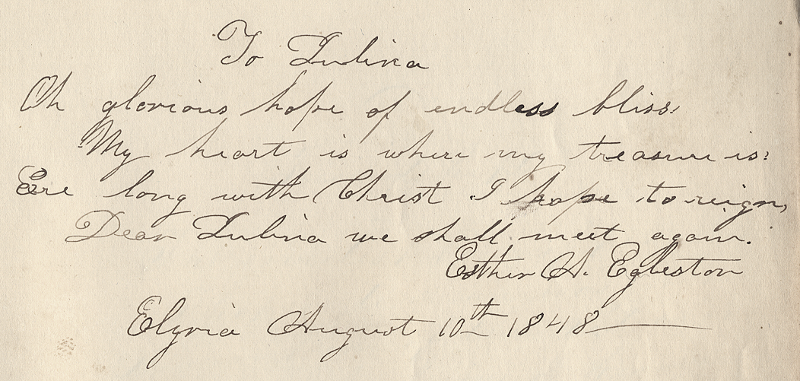 To Lulina
Oh glorious hope of endless bliss,
My heart is where my treasure is:
Ere long with Christ I hope to reign,
Dear Lulina we shall meet again.
Esther A. Egleston
Elyria August 10th 1848